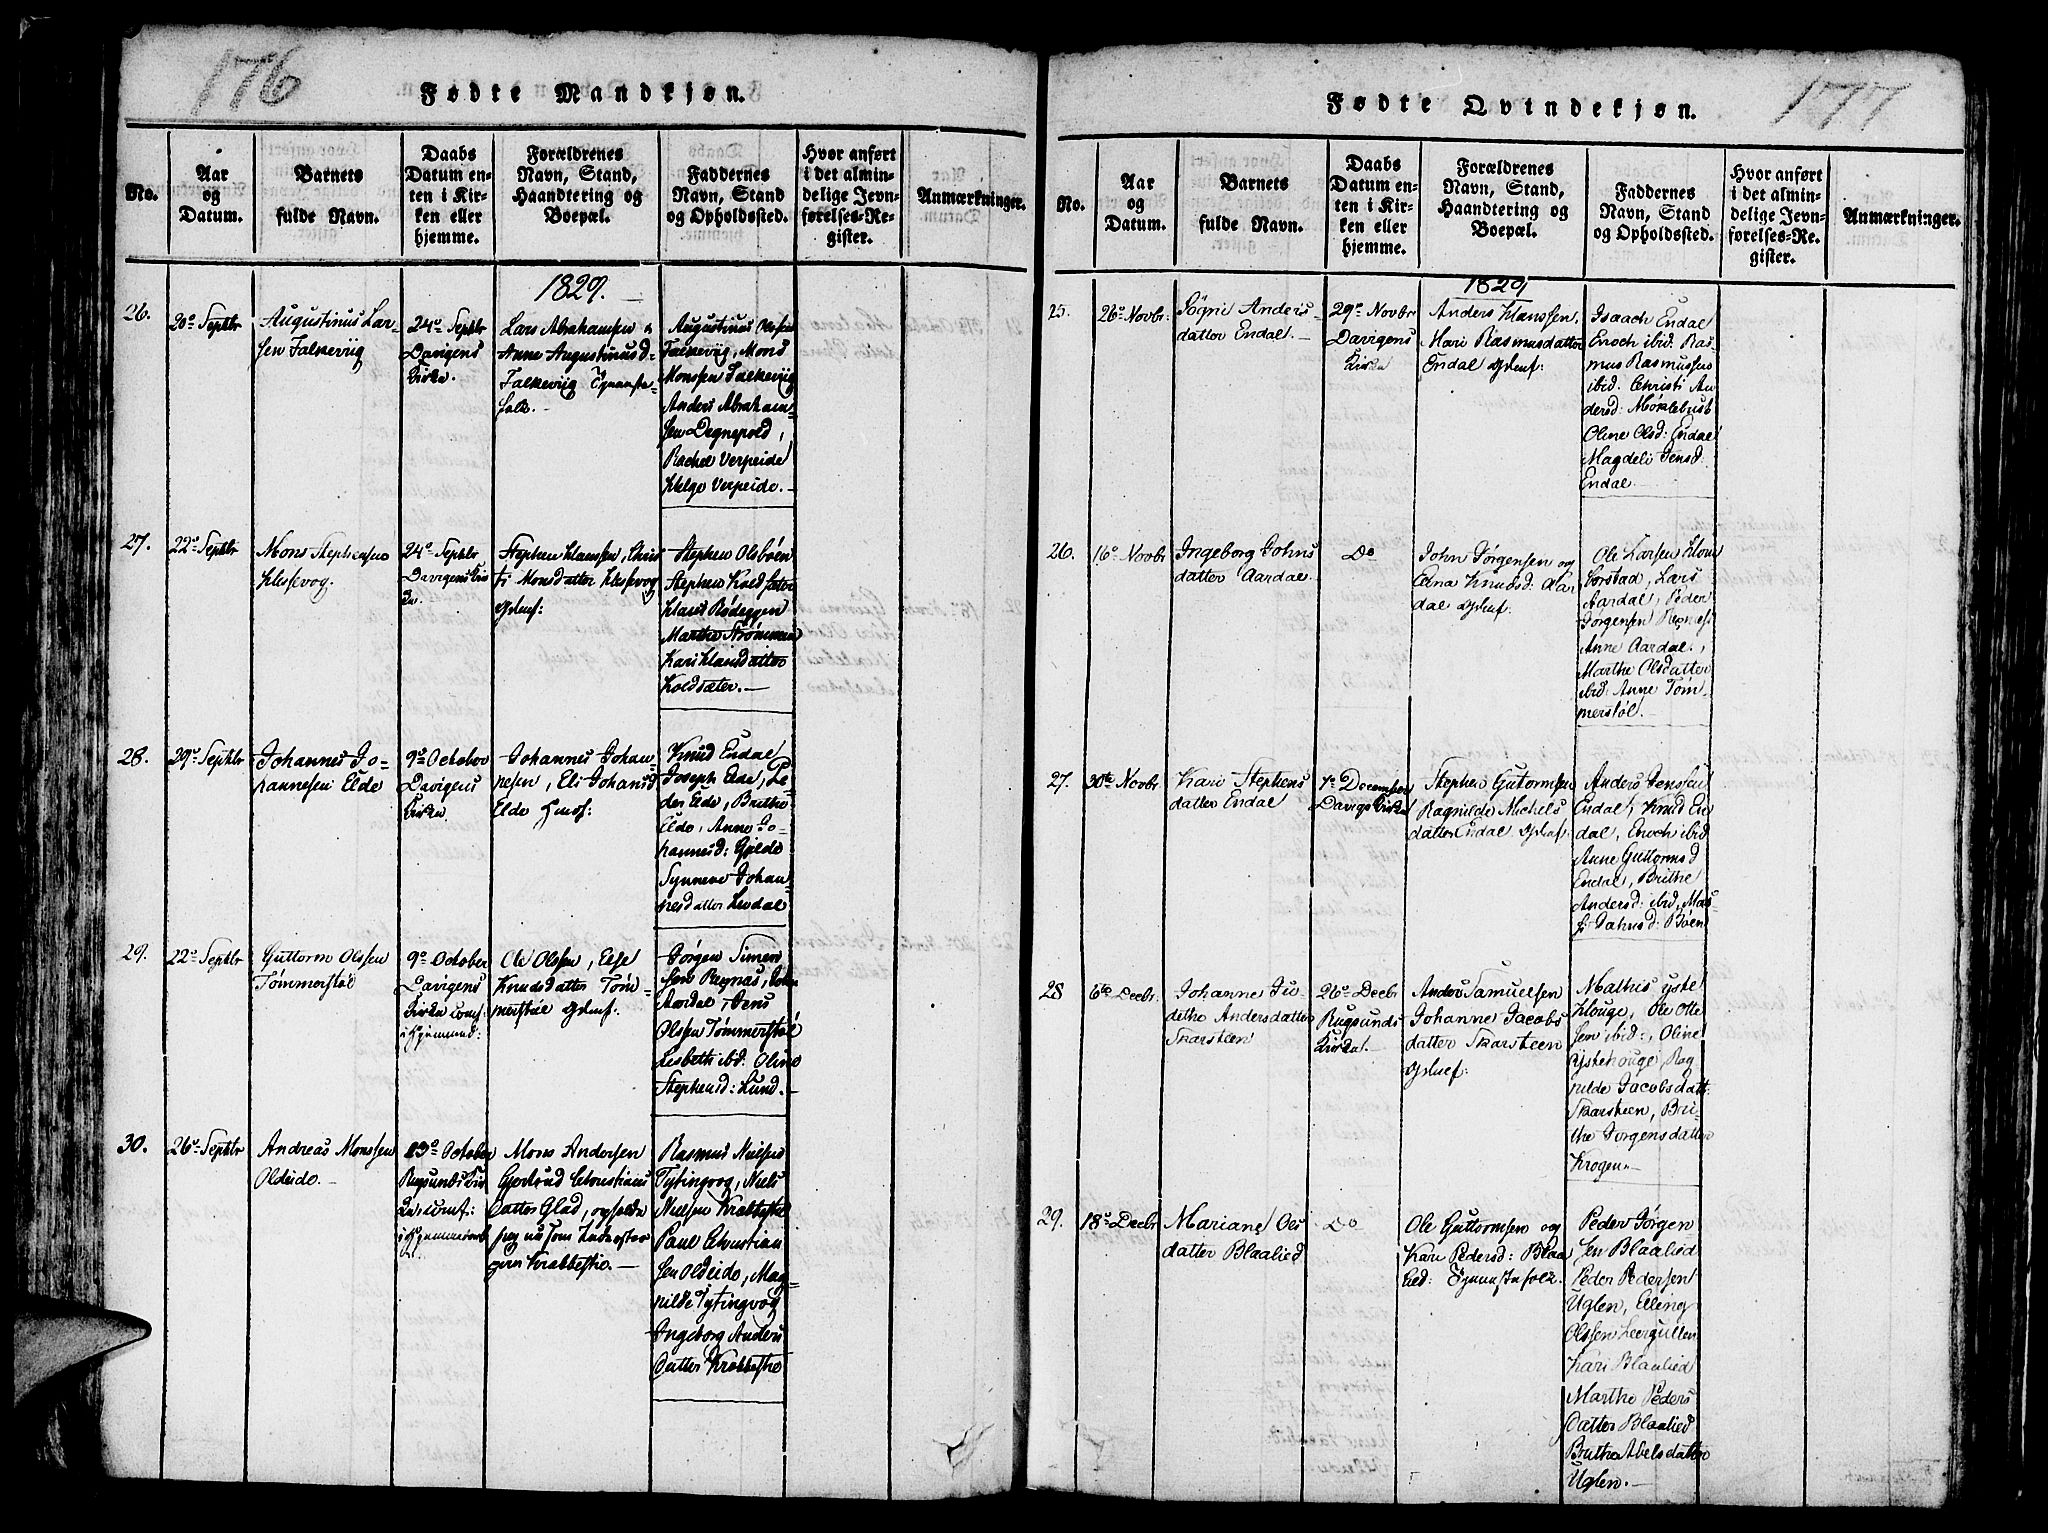 176
Fødte Mandkjøn.
No.
Aar
og
Datum.
Barnets
fulde Navn.
Daabs
Datum en-
ten i Kir-
ken eller
hjemme.
Forældrenes
Navn, Stand,
Haandtering og
Boepæl.
Faddernes
Navn, Stand
og Opholdssted.
Hvor anført
i det almin-
delige Jevn-
førelses-Re-
gister.
Anmærkninger.
1829.
26.
20de Septbr
Augustinus Lar-
sen Falkeviig
24de Septbr
Davigens
Kirke.
Lars Abrahamsen &
Anne Augustinusd-
Falkeviig
folk.
Augustinus Olsen
Falkeviig, Mons
Monssen Falkeviig
Anders Abraham-
sen Degnepold,
Rachel Verpeide
Helge Verpeide.
27.
22de Septbr
Mons Stephensen
Hessevog
24de Septbr
Davigens Kir-
ke.
Stephen Hanssen, Chris-
ti Monsdatter Hessevog
Stephen Olsbøen
Stephen Koldsæter
Hans Rødeggen
Marthe Strømmen
Kari Hansdatter
Koldsæter.
28.
29de Septbr
Johannes Jo-
hannesen Elde
9de October
Davigens
Kirke.
Johannes Johan-
nesen, Eli Johansd
Elde
Knud Endal
Joseph Elde, Pe-
der Elde, Brithe
Elde, Anne Jo-
hannesd: Gjelde
Synneve Johan-
nesdatter Levdal
29.
22de Septbr
Guttorm Olssen
Tømmerstøl
9de October
Davigens
Kirke conf:
i Hjemmed:
Ole Olssen, Else
Knudsdatter Tøm-
merstøl
Jørgen Simen
sen Rejnæs, John
Aardal, Jens
Olssen Tømmerstøl
Lisbeth ibd: Oline
Stephensd: Lund.
30.
26de Septbr
Andreas Monssen
Oldeide.
13de October
Rugsunds Kir-
ke conf:
Mons Andersen
Gjertrud Christians
datter Glad,
Krabbestie.
Rasmus Nielsen
Tytingvog, Niels
Nielsen Krabbestie
Paul Christian
sen Oldeide, Mag-
nilde Tytingvog
Ingeborg Anders
datter Krabbestie
177
Fødte Qvindekjøn.
No.
Aar
og
Datum.
Barnets
fulde Navn.
Daabs
Datum en-
ten i Kir-
ken eller
hjemme.
Forældrenes
Navn, Stand,
Haandtering og
Boepæl.
Faddernes
Navn, Stand
og Opholdssted.
Hvor anført
i det almin-
delige Jevn-
førelses-Re-
gister.
Anmærkninger.
1829
25.
26de Novbr:
Sögni Anders-
datter Endal.
29de Novbr
Davigens
Kirke
Anders Hanssen.
Mari Rasmusdatter
Endal
Isaach Endal
Enoch ibid. Ras-
mus Rasmussen
ibid. Christi An
dersd: Møklebust
Oline Olsd: Endal
Magdeli Jensd:
Endal.
26.
16de Novbr
Ingeborg Johns
datter Aardal
Do
John Jørgensen og
Anna Knudsd: Aar
dal
Ole Larsen
Lars
Aardal, Peder
Jørgensen Regness
Anne Aardal,
Marthe Olsdatter
ibid: Anne Tøm-
merstøl.
27.
30te Novbr
Kari Stephens
datter Endal
7de December
Davigs Kirke
Stephen Guttormsen
Ragnilde Michels
datter Endal
Anders Jenssen
Endal, Knud En
dal, Enoch ibid
Anne Guttormsd
Endal, Brithe
Andersd: ibid,
Bøen
28
6te Decbr:
Johanne Ju-
dethe Andersdatter
Skarsteen
26de Decbr
Rugsunds
Kirke.
Anders Samuelsen
Johanne Jacobs
datter Skarsteen
Mathis yste
Houge, Ole Otte
sen ibid:, Oline
Ystehouge, Rag
nilde Jacobsdatt:
Skarsteen, Bri-
the Jørgensdatter
Krogen
29.
18de Decbr
Mariane Ols
datter Blaalied
Do
Ole Guttormsen og
Kari Pedersd: Blaa
lied:
Peder Jørgen
sen Blaalied
Peder Pedersen
Uglen, Elling
Olssen Leergullen
Kari Blaalied
Marthe Peders
datter Blaalied
Brithe Abelsdatter
Uglen.